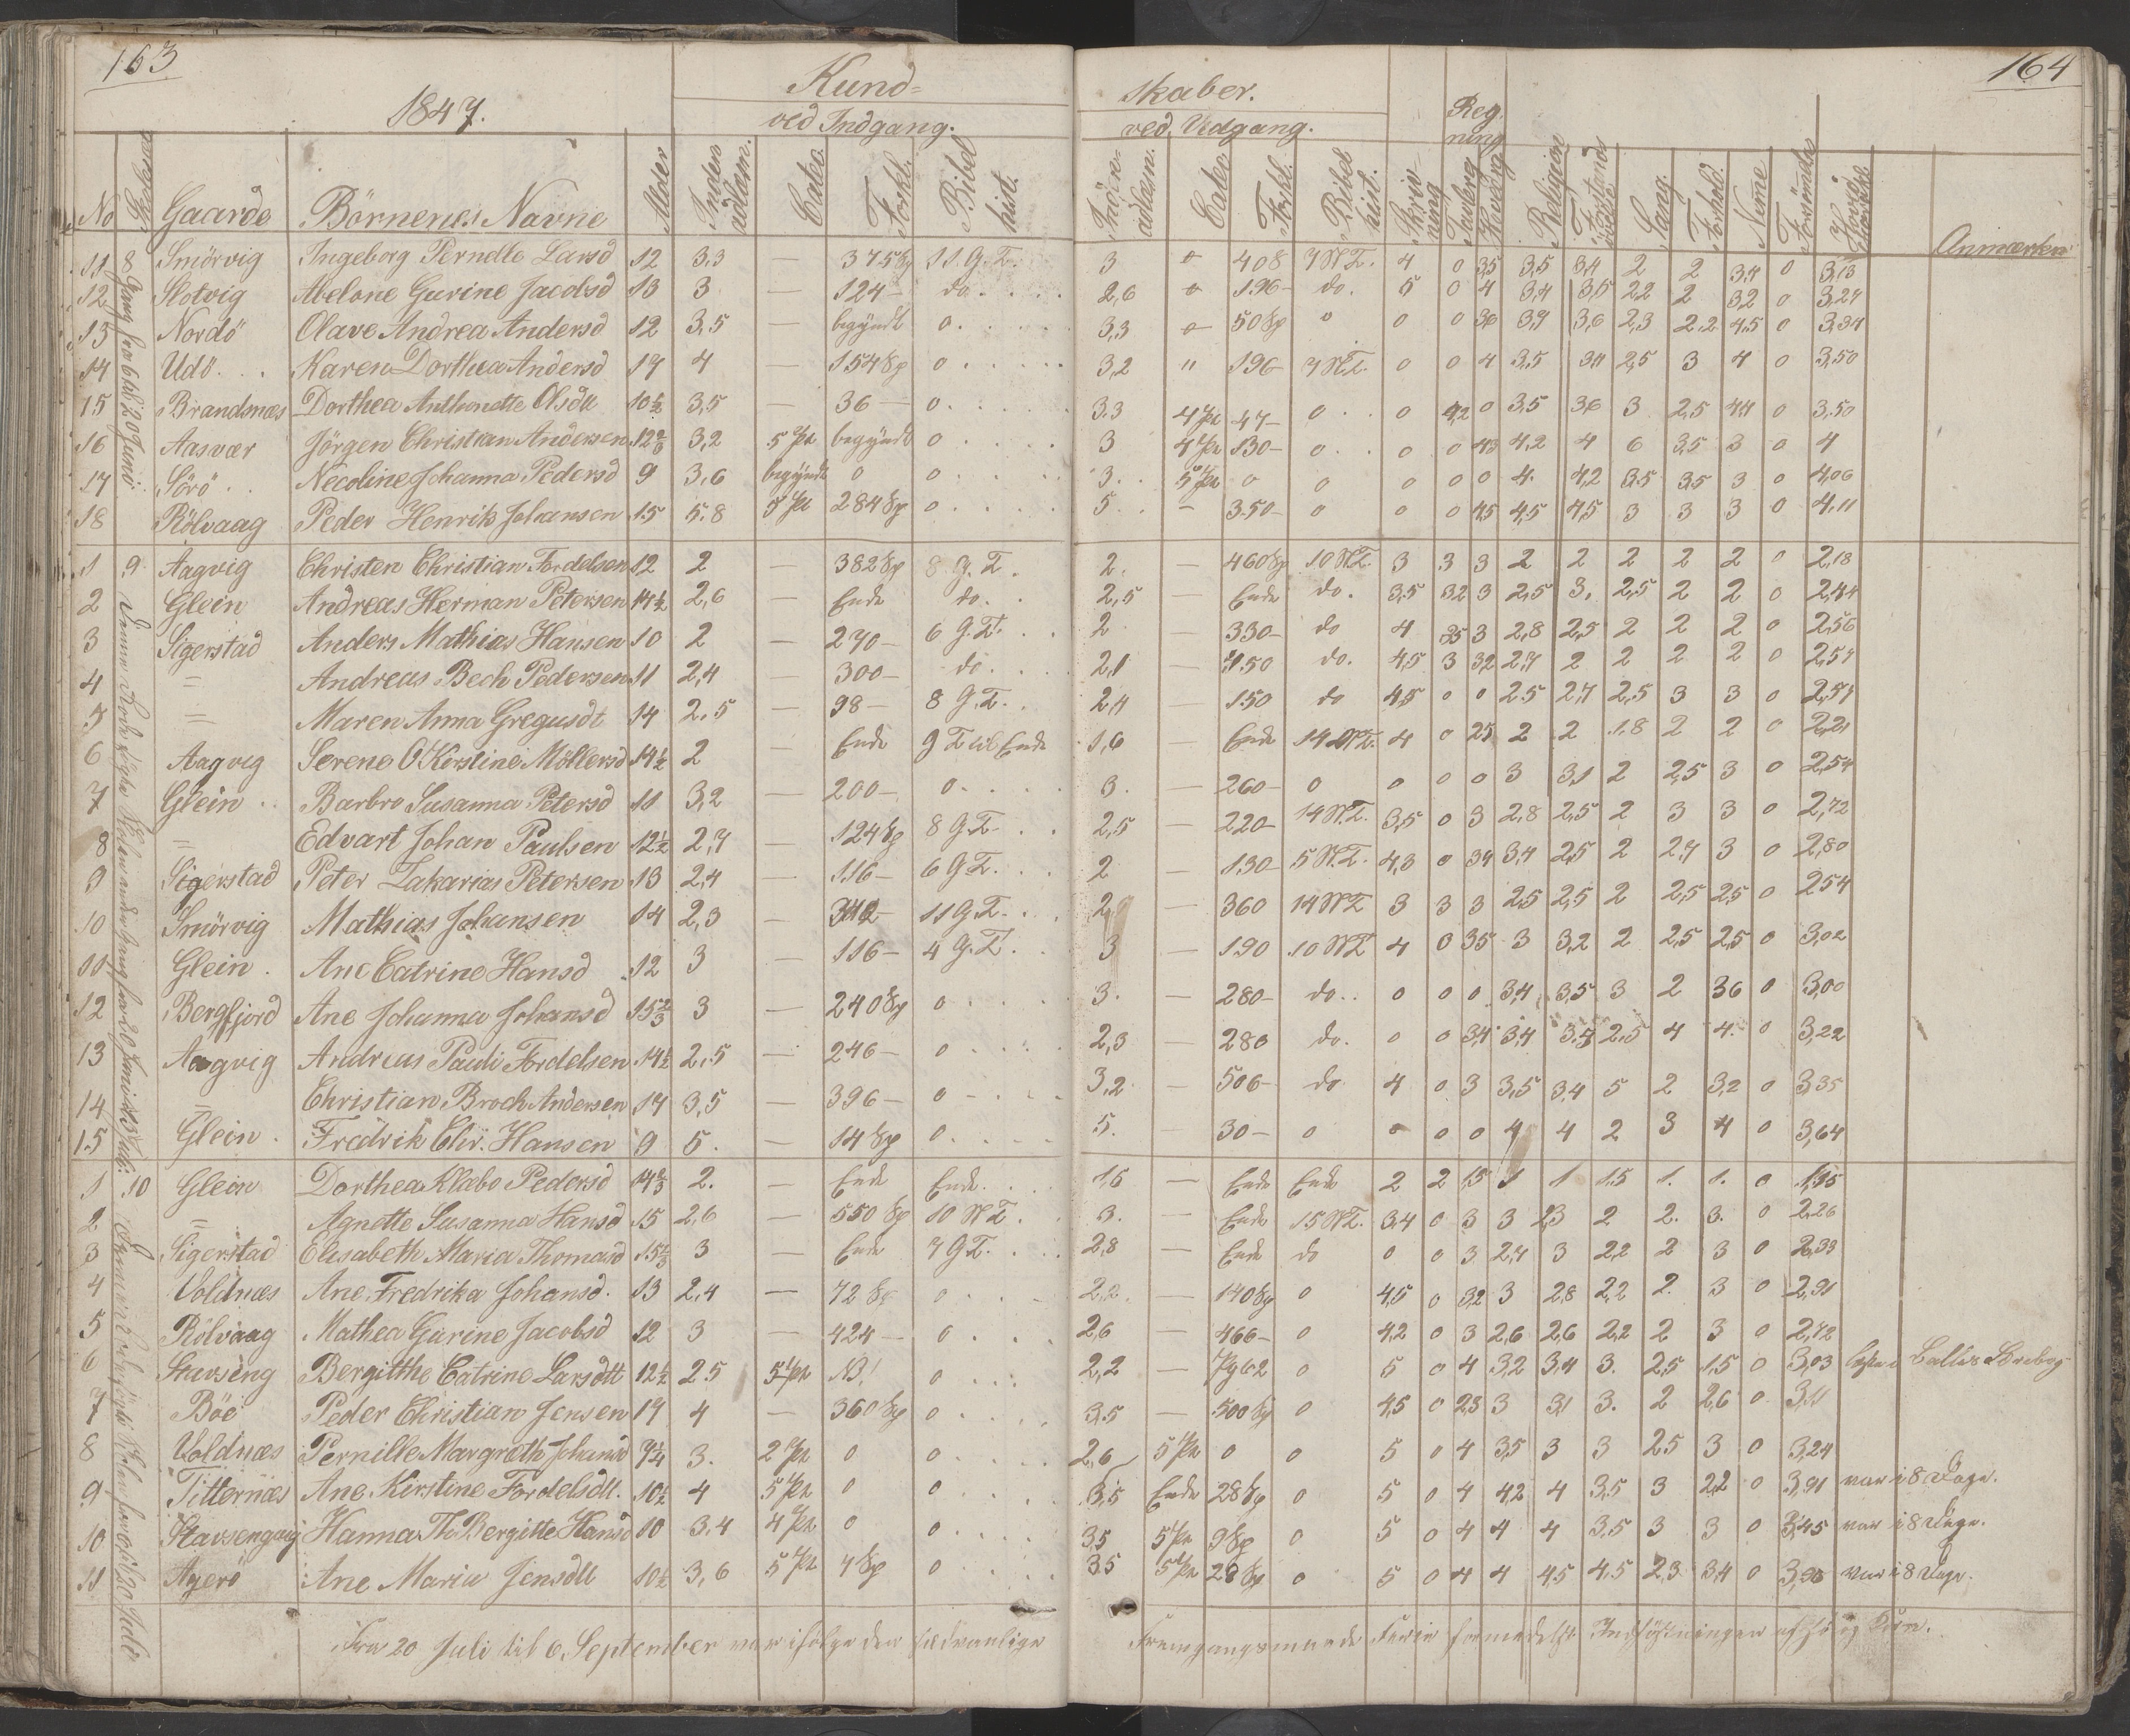 163
164
1847.
Kund=
skaber.
ved Indgang.
ved Udgang.
Reg
ning
No Gaarde Börnenes Navne Alder Inden adlæsn. Cate. Forkl. Bibel hist. Inden adlæsn. Cate. Forkl. Bibel hist. Skriv- ning Tavlerg Hoved Religion Forstand Sang. Forhold. Anmærkn
11 Smörvig Ingeborg Pernelle Larsd 12 3.3 — 375 Sp 11 G.T. 3 o 408 7 N.T. 4 0 3,5 3,5 3,4 2 2 3,4 0 3,13
12 Slotvig Abelone Gurine Jacobsd 13 3 — 124 — do. 2,6 o 196 — do. 5 0 4 3,4 3,5 2,2 2 3,2 0 3,24
13 Nordö Olave Andrea Andersd 12 3.5 — begyndt 0. 3,3 o 50 Sp 0 0 0 3,6 3,7 3,6 2,3 2.2 4,5 0 3,34
14 Udö Karen Dorthea Andersd 17 4 — 154 Sp 0 3,2 " 196 7 N.T. 0 0 4 3,5 3,4 2,5 3 4 0 3,50
15 Brandsnæs Dorthea Anthonette Olsdtt 10½ 3,5 — 36 — 0. 3.3 4 Pt 47 — 0 0 4,2 0 3,5 3,6 3 2,5 4,4 0 3,50
16 Aasvær Jörgen Christian Andersen 12⅔ 3,2 5 Pt begyndt 0 3 4 Pt 130 — 0 0 0 4,3 4,2 4 6 3,5 3 0 4
17 Sörö Necoline Johanna Pedersd 9 3,6 begyndt 0 0 3. 5 Pt 0 0 0 0 0 4. 4,2 3.5 3,5 3 0 4,06
18 Rölvaag Peder Henrik Johansen 15 5.8 5 Pt 284 Sp 0 5 — 350 — 0 0 0 4,5 4,5 4,5 3 3 3 0 4,11
1 9 Aagvig Christen Christian Fordelsen 12 2 — 382 Sp 8 G.T. 2. — 460 Sp 10 N.T. 3 3 3 2 2 2 2 2 0 2,18
2 Glein Andreas Herman Petersen 14½ 2,6 — Ende do. 2,5 — Ende do. 3,5 3,2 3 2,5 3. 2,5 2 2 0 2,44
3 Sigerstad Anders Mathias Hansen 10 2 — 270 — 6 G.T. 2 — 330 — do 4 3,5 3 2,8 2,5 2 2 2 0 2,56
4 = Andreas Bech Pedersen 11 2,4 — 300 — do. 2,1 — 450 do. 4,5 3 3,2 2,7 2 2 2 2 0 2,57
5 = Maren Anna Gregusdt 14 2.5 — 98 — 8 G.T. 2,4 — 150 do 4,5 0 0 2.5 2,7 2,5 3 3 0 2,57
6 Aagvig Serene O Kirstine Möllersd 14½ 2 — Ende 9 T til Ende 1,6 Ende 14 N.T. 4 0 2,5 2 2 1.8 2 2 0 2,21
7 Glein Barbro Susanna Petersd 11 3,2 — 200 — 0. 3. — 260 — 0 0 0 0 3 3,1 2 2,5 3 0 2,54
8 = Edvart Johan Paulsen 12½ 2,7 — 124 Sp 8 G.T. 2,5 — 220 — 14 N.T. 3,5 0 3 2,8 2,5 2 3 3 0 2,72
9 Sigerstad Peter Zakarias Petersen 13 2,4 — 116 — 6 G.T. 2 — 130 — 5 N.T. 4,3 0 3,4 3,4 2,5 2 2,7 3 0 2,80
10 Smörvig Mathias Johansen 14 2,3 — 342 — 11 G.T. 2, — 360 14 N.T 3 3 3 2,5 2,5 2 2,5 2,5 0 2,54
11 Glein Ane Catrine Hansd 12 3 — 116 — 4 G.T. 3 — 190 10 N.T 4 0 3,5 3 3,2 2 2,5 2,5 0 3,02
12 Bergfjord Ane Johanna Johansd 15⅔ 3 240 Sp 0 3. — 280 — do. 0 0 0 3,4 3,5 3 2 3,6 0 3,00
13 Aagvig Andreas Pauli Fordelsen 14½ 2,5 — 246 — 0 2,3 — 280 do. 0 0 3,4 3,4 3,4 2,5 4 4 0 3,22
14 = Christian Broch Andersen 17 3,5 — 396 — 0 3,2 — 506 — do 4 0 3 3,5 3,4 5 2 3,2 0 3,35
15 Glein Fredrik Chr. Hansen 9 5. — 14 Sp 0 5. — 30 — 0 0 0 0 4 4 2 3 4 0 3,64
1 10 Glein Dorthea Klæbo Pedersd 14⅔ 2. — Ende Ende 1,6 — Ende Ende 2 2 1,5 1 1 1.5 1. 1. 0 1,35
2 = Agnette Susanna Hansd 15 2,6 — 550 Sp 10 N.T. 3. — Ende 15 N.T. 3.4 0 3 3 2,3 2 2. 3. 0 2,26
3 Sigerstad Elisabeth Maria Thomasd 15⅔ 3 — Ende 7 G.T. 2,8 — Ende do 0 0 3 2,7 3 2,2 2 3 0 2,39
4 Voldnæs Ane Fredrika Johansd. 13 2,4 — 72 Sp 0 2,2. — 140 Sp 0 4,5 0 3,2 3 2,8 2,2 2. 3 0 2,91
5 Rölvaag Mathea Gurine Jacobsd 12 3 — 424 — 0 2,6 — 466 — 0 4,2 0 3 2,6 2,6 2,2 2 3 0 2,72
6 Stavseng Bergitthe Catrine Larsdtt 12½ 2.5 5 Pt 13! 0 2,2 — 0 5 0 4 3,2 3,4 3. 2,5 1.5 0 3,03
7 Böe Peder Christian Jensen 19 4 — 360 Sp 0 3.5 — 500 Sp 0 4,5 0 2,8 3 3,1 3. 2 2,6 0 3,11
8 Voldnæs Pernille Margreth Johansd 7¼ 3. 2 Pt 0 0 2,6 5 Pt 0 0 5 0 4 3,5 3 3 2,5 3 0 3,24
9 Titternæs Ane Kirstine Fordelsdtt. 10½ 4 5 Pt 0 0 3,5 Ende 28 Sp 0 5 0 4 4,2 4 3.5 3 2,2 0 3,91 var i 8 Dage.
10 Stavsengvig Hanna Th. Bergitte Hansd 10 3.4 4 Pt 0 0 3,5 5 Pt 9 Sp 0 5 0 4 4 4 3.5 3 3 0 3,45 var i 8 Dage.
11 Agerö Ane Maria Jensdtt 10½ 3,6 5 Pt 4 Sp 0 3.5 5 Pt 28 Sp 0 5 0 4 4 4,5 4.5 2,3 3,4 0 3,90 var i 8 Dage.
Fra 20 Juli til 6 September var ifölge den sædvanlige
Fremgangsmaade Ferie formedelst Indhöstningen af Hö og Korn.